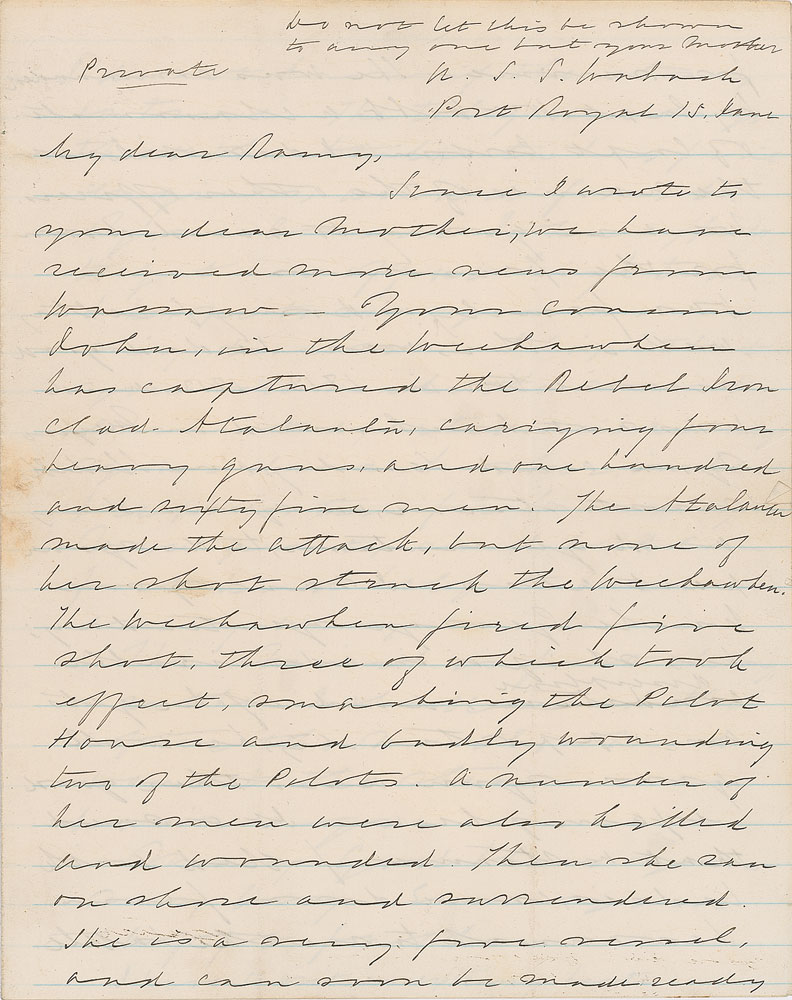 Do not let this be shown
to any one but your Mother
Private
U. S. S. Wabash
Port Royal 15. June
My dear
Since I wrote to
your dear Mother, we have
received more news from
Wassaw. — Your cousin
John, in the Weehawken
has captured the Rebel Iron
clad. Atalanta, carrying four
heavy guns, and one hundred
and sixty five men. The Atalanta
made the attack, but none of
her shot struck the Weehawken.
The Weehawken fired five
shot, three of which took
effect, smashing the Pilot
House and badly wounding
two of the Pilots. A number of
her men were also killed
and wounded. Then she ran
on shore and surrendered.
She is a very fine vessel,
and can soon be made ready